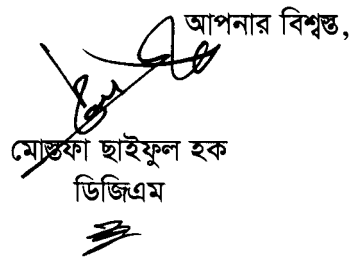 আপনার বিশ্বস্ত,
মোস্তফা ছাইফুল হক
ডিজিএম